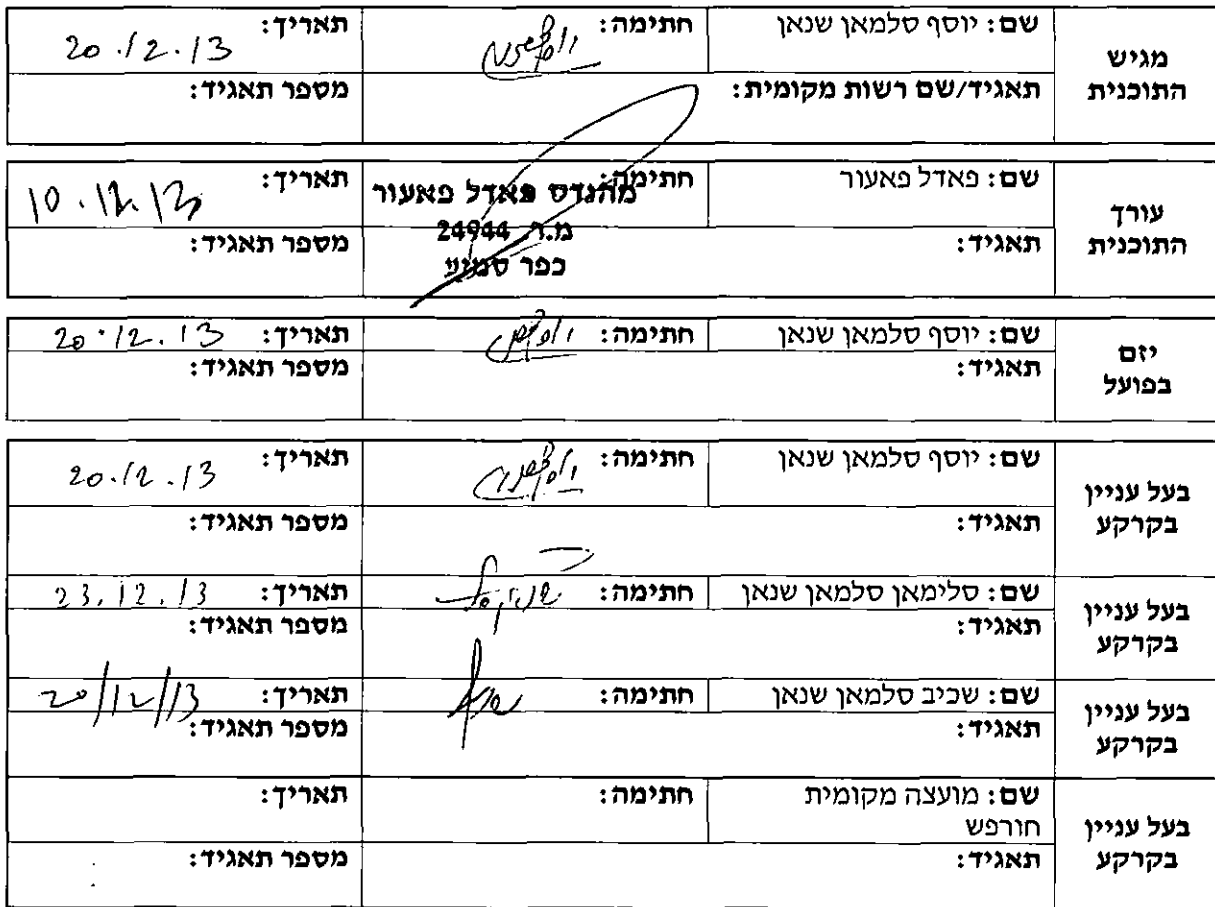 מגיש התוכנית
שם: יוסף סלמאן שנאן חתימה: תאריך: 20.12.13
תאגיד/שם רשות מקומית: מספר תאגיד:
עורך התוכנית
שם: פאדל פאעור חתימה: תאריך: 10.12.13
מהנדס פאדל פאעור
מ.ר. 24944
כפר סמיע
תאגיד: מספר תאגיד:
יזם בפועל
שם: יוסף סלמאן שנאן חתימה: תאריך: 20.12.13
תאגיד: מספר תאגיד:
בעל עניין בקרקע
שם: יוסף סלמאן שנאן חתימה: תאריך: 20.12.13
תאגיד: מספר תאגיד:
בעל עניין בקרקע
שם: סלימאן סלמאן שנאן חתימה: תאריך: 23.12.13
תאגיד: מספר תאגיד:
בעל עניין בקרקע
שם: שכיב סלמאן שנאן חתימה: תאריך: 20/12/13
תאגיד: מספר תאגיד:
בעל עניין בקרקע
שם: מועצה מקומית חורפש חתימה: תאריך:
תאגיד: מספר תאגיד: